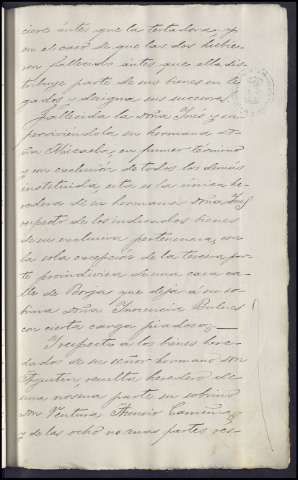 ciere ántes que la testadora, y
en el caso de que las dos hubie-
sen fallecido ántes que ella dis-
tribuye parte de sus bienes en le-
gados y designa sus sucesores
Fallecida la doña Inés y so-
breviviéndola su hermana do-
ña Micaela, en primer término
y con exclusion de todos los demás
instituida, esta es la única he-
redera de su hermana doña Inés
respecto de los indicados bienes
de su exclusiva pertenencia, con
la sola excepcion de la tercera par-
te proindivisa de una casa ca-
lle de Borja que dejó á su so-
brina doña Inocencia
con cierta carga piadosa,
Y respecto a los bienes here-
dados de su señor hermano don
Agustin, resulta heredero de
una novena parte su sobrino
don Ventura
y de las ocho novenas partes res-